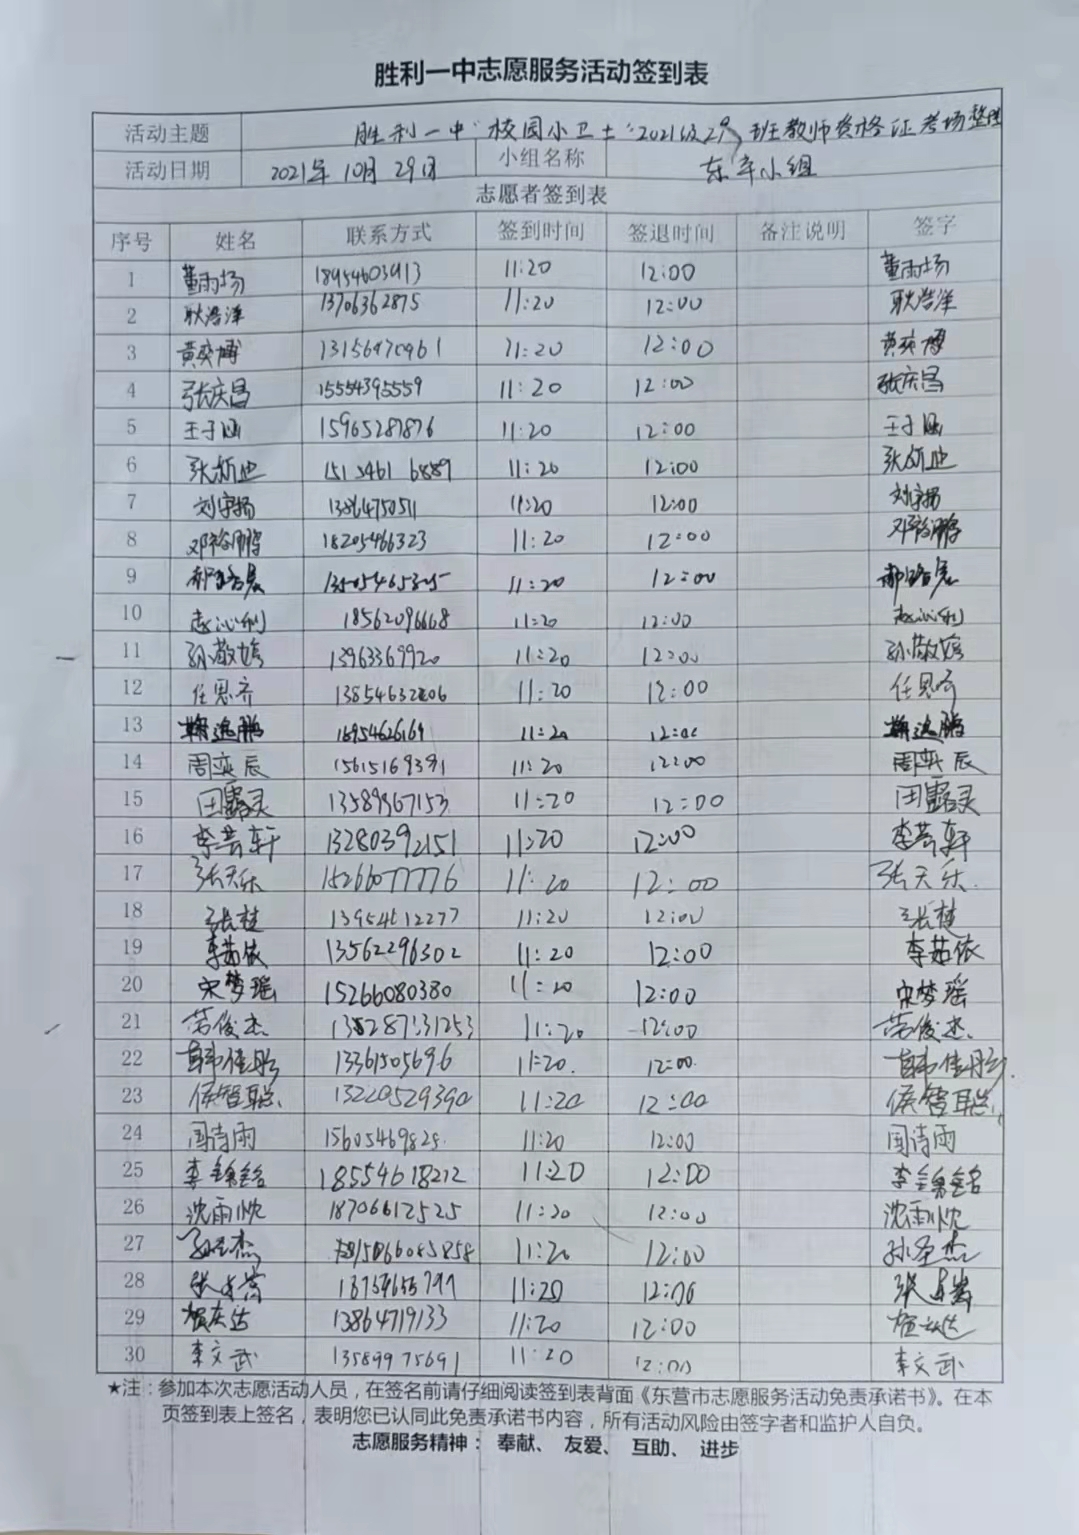 胜利一中志愿服务活动签到表
活动主题 胜利一中"校园小卫士"2021级29班教师资格证考场整理
活动日期 2021年10月29日 小组名称 东辛小组
志愿者签到表
序号 姓名 联系方式 签到时间 签退时间 备注说明 签字
1 董雨场 18954603913 11:20 12:00 董雨场
2 耿浩洋 13706362875 11:20 12:00 耿浩洋
3 黄奕博 13156970961 11:20 12:00 黄奕博
4 张庆昌 15554395559 11:20 12:00 张庆昌
5 王子涵 15965287876 11:20 12:00 王子涵
6 1515461 6889 11:20 12:00
7 刘宇扬 13864750511 11:20 12:00 刘宇扬
8 邓裕鹏 18205466323 11:20 12:00 邓裕鹏
9 11:20 12:00
10 赵沁利 18562096668 11:20 12:00 赵沁利
11 孙敬嫣 13963369920 11:20 12:00 孙敬嫣
12 任思齐 13854632806 11:20 12:00 任思齐
13 11:20 12:00
14 周奕辰 15615169391 11:20 12:00 周奕辰
15 田露灵 13589967153 11:20 12:00 田露灵
16 李芸轩 13280392151 11:20 12:00 李芸轩
17 张天乐 15266077776 11:20 12:00 张天乐
18 张楚 13954612277 11:20 12:00 张楚
19 李茹依 13562296302 11:20 12:00 李茹依
20 宋梦瑶 15266080380 11:20 12:00 宋梦瑶
21 劳俊杰 11:20 12:00 劳俊杰
22 韩佳彤 13361505696 11:20 12:00 韩佳彤
23 侯智聪 13220529390 11:20 12:00 侯智聪
24 周诗雨 15605469825 11:20 12:00 周诗雨
25 李锦铭 18554618212 11:20 12:00 李锦铭
26 沈雨忱 18706612525 11:20 12:00 沈雨忱
27 孙圣杰 11:20 12:00 孙圣杰
28 张 11:20 12:00 张
29 贺庆达 13864719133 11:20 12:00 贺庆达
30 李文武 13589975691 11:20 12:00 李文武
★注：参加本次志愿活动人员，在签名前请仔细阅读签到表背面《东营市志愿服务活动免责承诺书》。在本
页签到表上签名，表明您已认同此免责承诺书内容，所有活动风险由签字者和监护人自负。
志愿服务精神： 奉献、 友爱、 互助、 进步